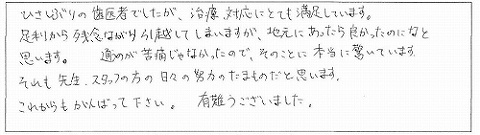 ひさしぶりの歯医者でしたが、治療、対応にとても満足しています。
足利から残念ながら引越してしまいますが、地元にあったら良かったのになと
思います。 通うのが苦痛じゃなかったので、そのことに本当に驚いています。
それも先生、スタッフの方の日々の努力のたまものだと思います。
これからもがんばって下さい。 有難うございました。